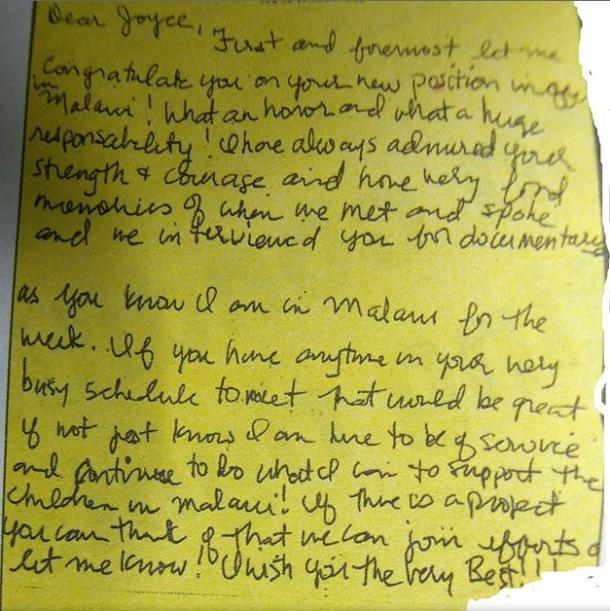 Dear Joyce,
First and foremost let me
Congratulate you on your new position in
in Malawi! What an honor and what a huge
responsability! I have always admired your
strength & courage and have very fond
memories of when we met and spoke
and we interviewed you for documentary
as you know I am in Malawi for the
week. If you have anytime in your very
busy schedule to meet that would be great
if not just know I am here to be of service
and continue to do what I can to support the
children in Malawi! If there is a project
you can think of that we can join efforts
let me know! I wish you the very Best!!!